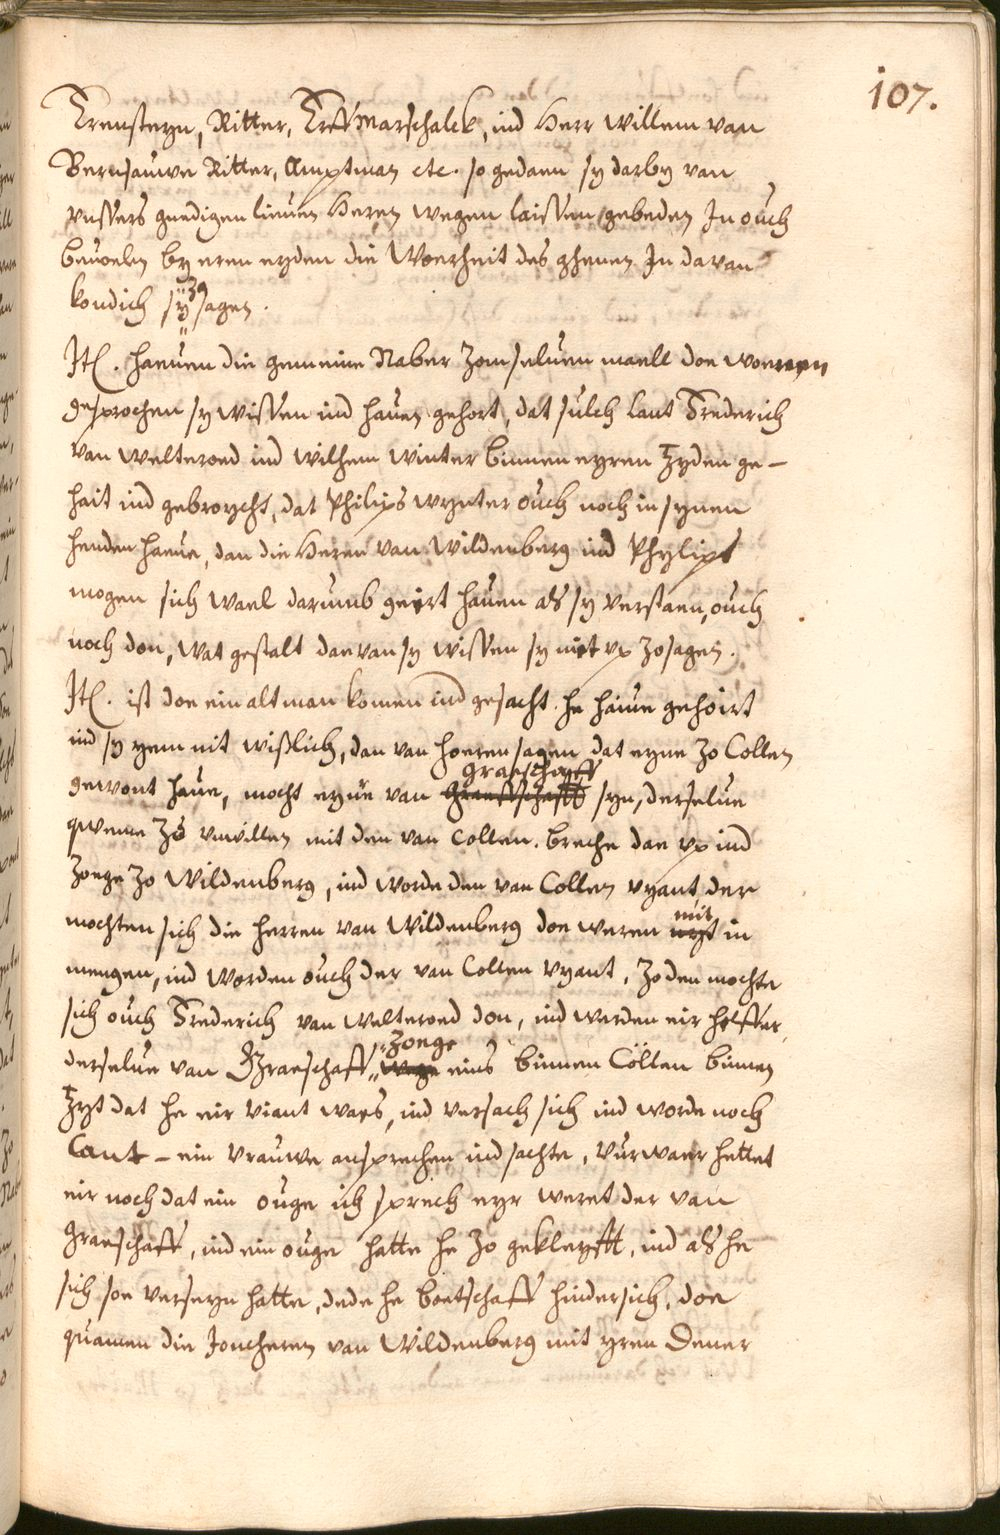 107.
Erensteyn, Ritter, Erffmarschalck, ind Herr Willem van
Bernsauwe Ritter, Amptman etc. so gedaen sy darby van
vnssers gnedigen lieuen Heren wegen laissen gebeden In ouch
beuoelen by eren eyden die Woerheit des ghenen In davan
kondich sÿ zo sagen.
Itl. haeuen die gemeine Naber zom seluen maell doe woeren
gesprochen sy wissen ind hauen gehort, dat sulch Lant Frederich
van Welteroed ind Wilhem Winter binnen eyren Tzyden ge-
hait ind gebroycht, dat Philips Wynter ouch noch in synen
henden haeue, dan die Heren van Wildenberg ind Phylips
mogen sich wael darumb geirt hauen als sy verstaen, ouch
noch don, wat gestalt daevan sy wissen sy niet vp zosagen.
Itl. ist doe ein alt man komen ind gesacht. he haiue gehoirt
ind sy yem nit wißlich, dan van hoeren sagen dat eyne zo Collen
gewont haue, mocht eyne van Graeffschafft Graeschafft syn, derselue
queme zo vnwillen mit den van Collen. breche dae vp ind
zoege zo Wildenberg, ind worde den van Collen vyant, der
mochten sich die herren van Wildenberg doe weren nyt nit in
mengen, ind worden ouch der van Collen vyant, zo den mochte
sich ouch Frederich van Welteroed don, ind warden eir helffer,
derselue van Graeschaff, wege zoege eins binnen Cöllen binnen
Tzyt dat he eir viant waes, ind versach sich ind worde noch
Cant - ein vrauwe ansprechen ind sachte, vurwaer hettet
eir noch dat ein ouge ich sprech eyr weret der van
Graeschaff, ind ein ouge hatte he zo gekleyfft, ind als he
sich soe verseyn hatte, dede he boetschaff hindersich, doe
quamen die Joncheren van Wildenberg mit yren Dener